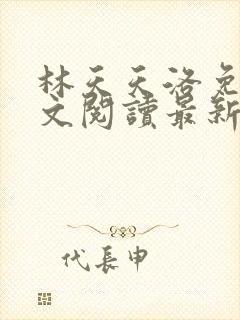 林天天洛免
文閱讀最新
代長申